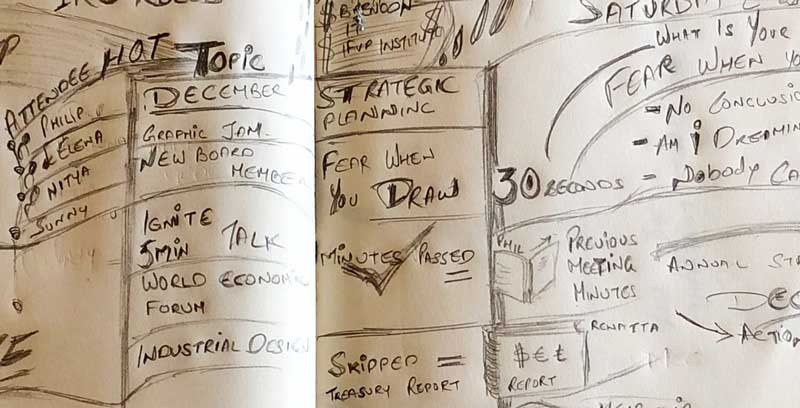 ATTENDEE
PHILIP
ELENA
NITYA
SUNNY
HOT TOPIC
DECEMBER
GRAPHIC JAM
NEW BOARD
MEMBER
IGNITE
5MIN TALK
WORLD ECONOMIC
FORUM
INDUSTRIAL DESIGN
$ BRENDON
$ IFVP INSTITUTO
STRATEGIC
PLANNING
FEAR WHEN
YOU DRAW
MINUTES PASSED
SKIPPED
TREASURY REPORT
SATURDAY
WHAT IS YOUR
FEAR WHEN YO
30 SECONDS
- NO CONCLUSIO
- AM I DREAMIN
- NOBODY CA
PHIL
PREVIOUS
MEETING
MINUTES
ANNUAL ST
DEC
ACTION
RENATTA
$ € £
REPORT